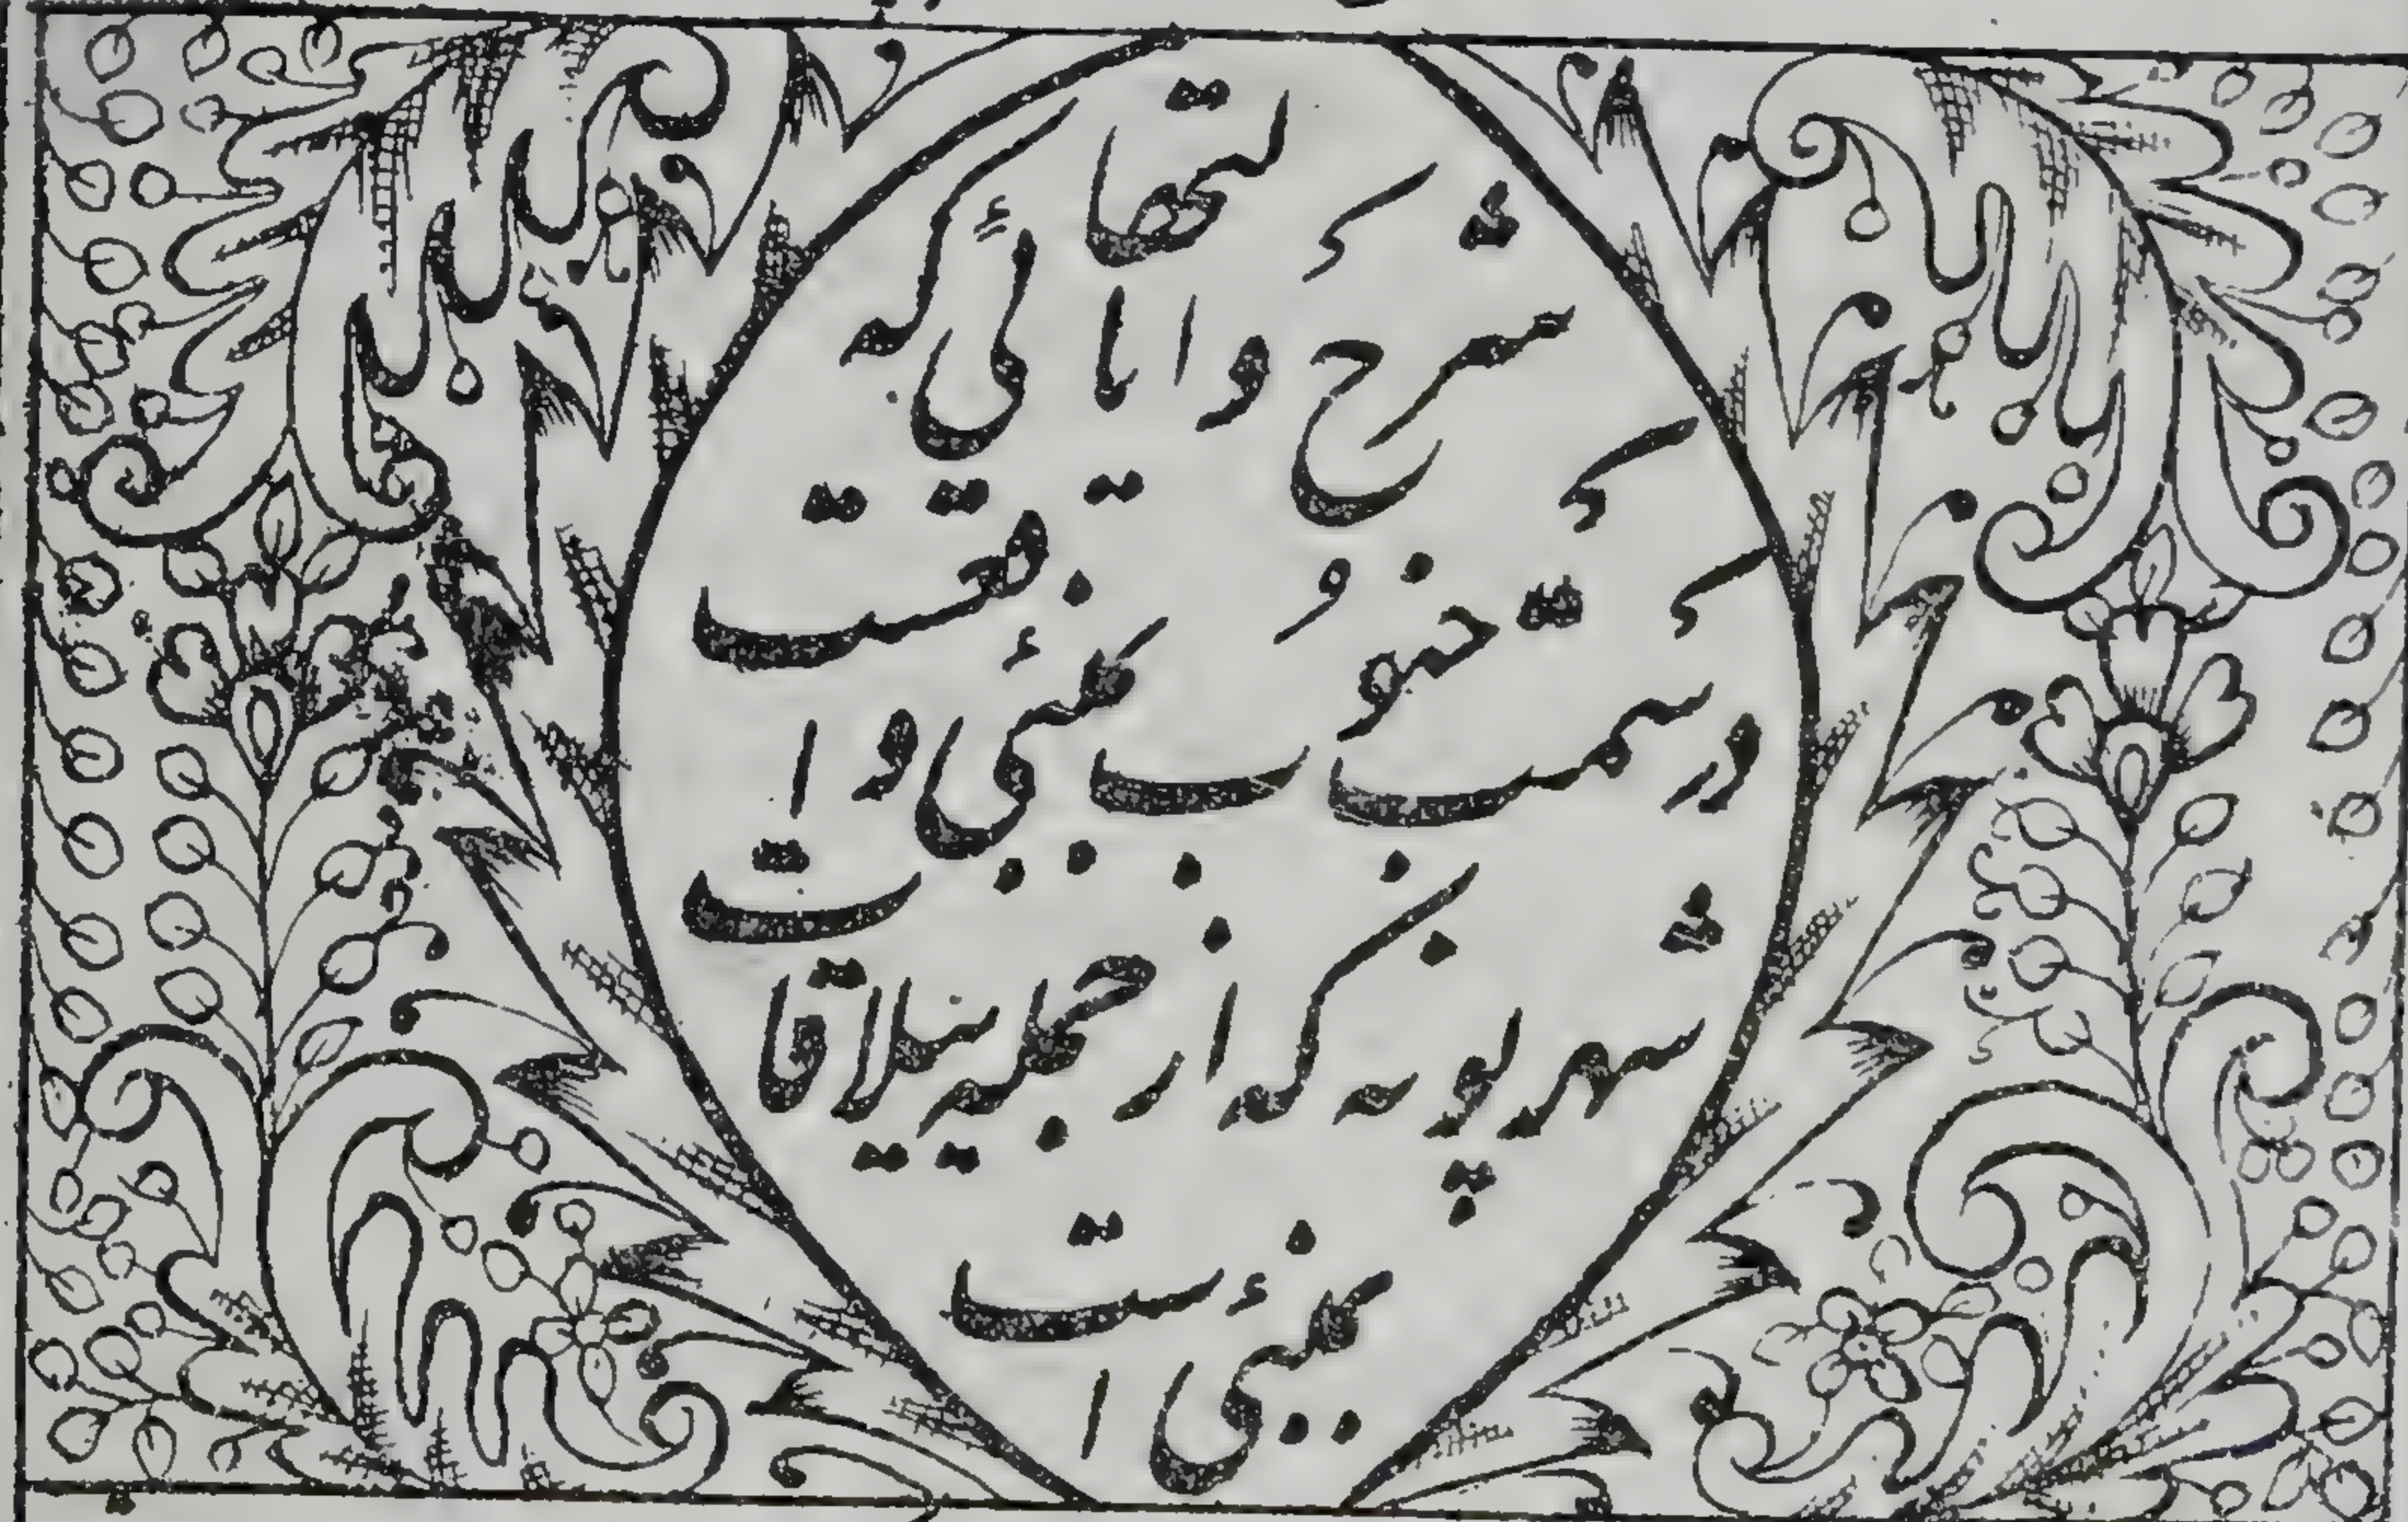 شرح که
در سمت جنوب بمبئی واقعست
شهر پونه که از جمله ییلاقات
بمبئی است